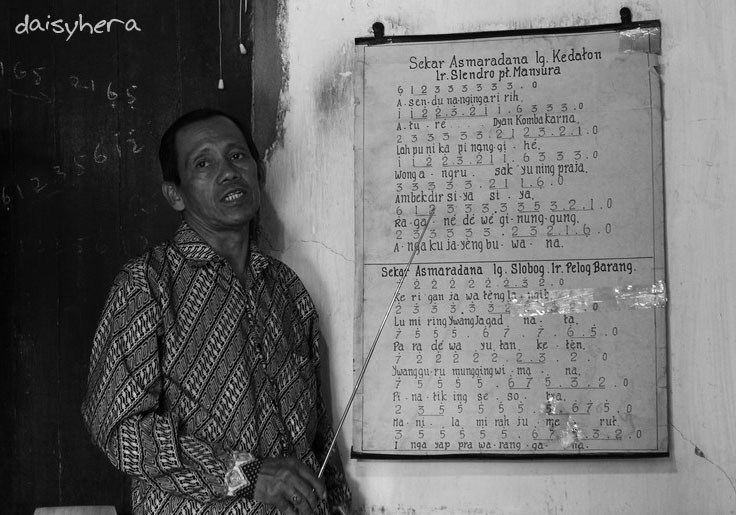 daisyhera
Sekar Asmaradana lg. Kedaton
lr. Slendro pt. Manyura
6 1 2 3 3 3 3 3 . 0
A . sen . du na . ngingari rih,
1 1 2 2 . 3 . 2 1 1 . 6 3 3 3 . 0
A . tu . re Dyan Kombakarna,
2 3 3 3 3 3 . 2 1 2 3 . 2 1 . 0
Lah pu ni ka pi nang . gi . hé,
1 1 2 2 . 3 . 2 1 1 . 6 3 3 3 . 0
Wong a . ngru . sak yu ning praja,
3 3 3 3 3 . 2 1 1 . 6 . 0
Ambek dir si . ya si . ya,
6 1 2 3 3 3 . 3 3 5 3 . 2 . 1 . 0
Ra . ga . né dé wé gi . nung . gung,
2 3 3 3 3 3 . 2 3 2 1 . 6 . 0
A . nga ku ja . yéng bu . wa . na.
Sekar Asmaradana lg. Slobog. lr. Pelog Barang.
2 2 2 2 2 2 . 2 3 2 . 0
Ke ri gan ja wa téng
2 3 3 3 . 3
Lu mi ring Ywang Jagad na . ta,
7 5 5 5 . 6 7 . 7 . 6 . 5 . 0
Pa ra dé wa yu tan . ke . tén,
7 2 2 2 2 2 . 2 . 3 . 2 . 0
Ywang guru mungging wi . ma . na,
7 5 5 5 5 5 . 6 7 5 . 3 . 2 . 0
Pi . na . tik ing se . so .
2 3 5 5 5 5 5 . 6 7 5 . 0
Ma . ni . la mi rah ju . me rut,
3 5 5 5 5 5 . 6 7 . 3 . 2 . 0
I nga yap pra wa . rang . ga . na.